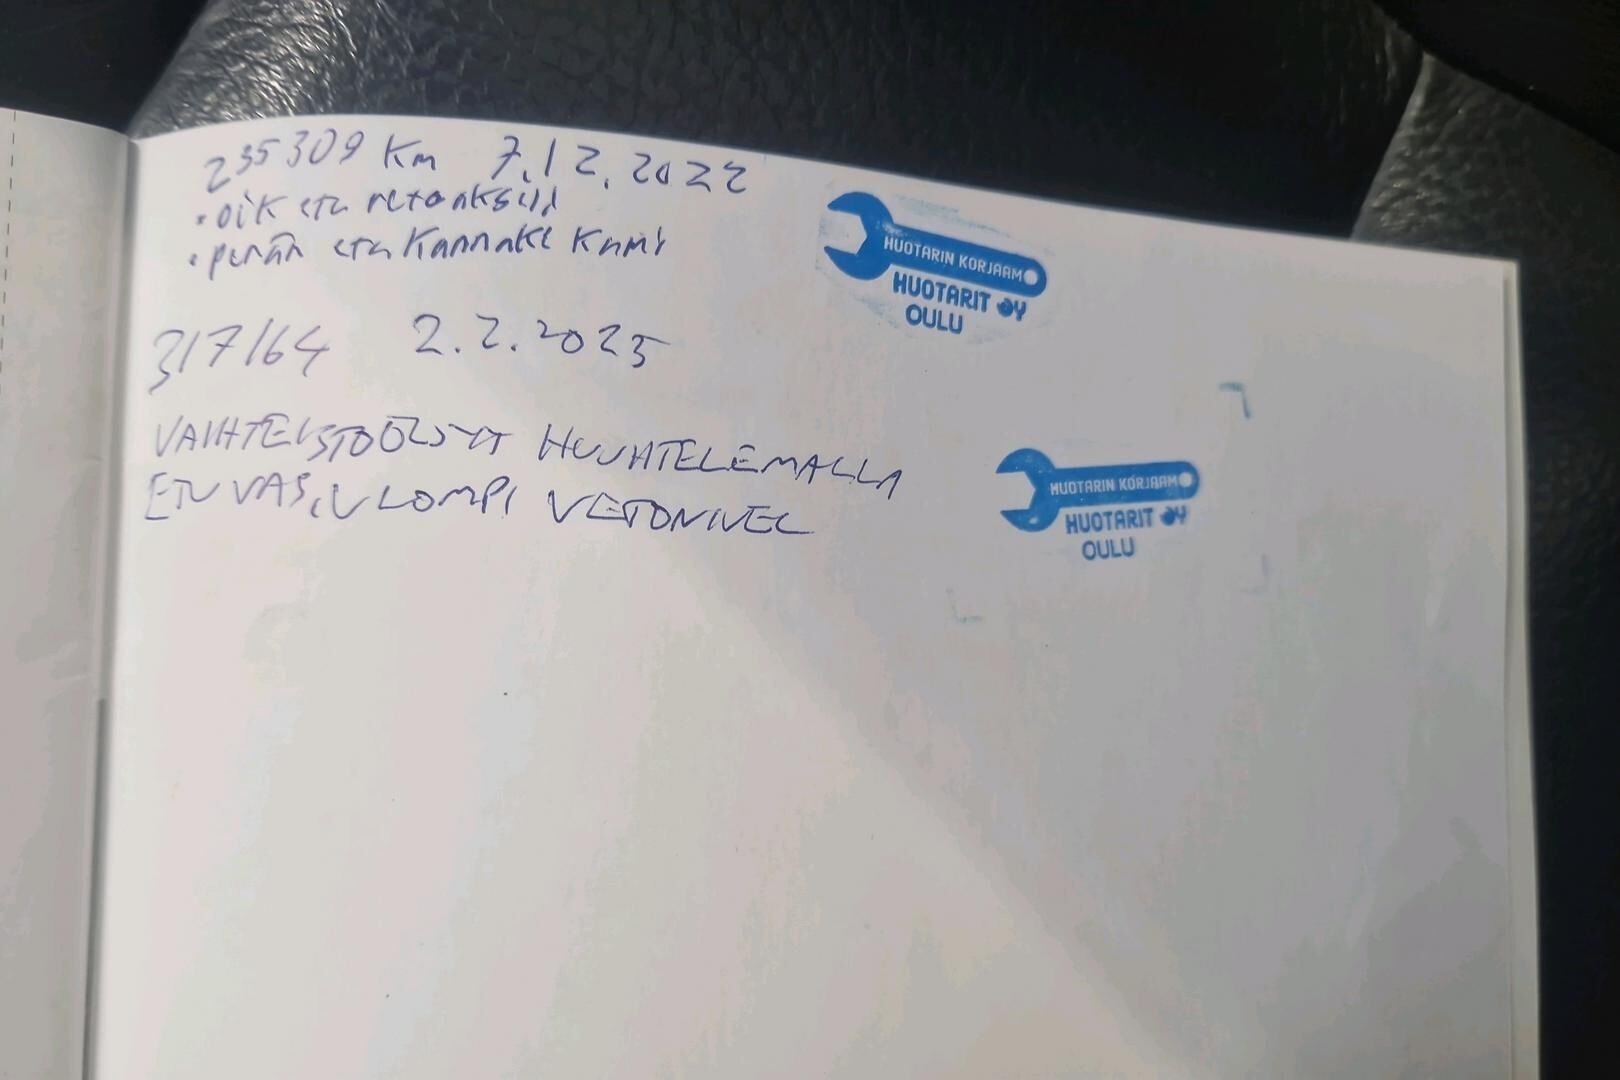 235309 km 7.12.2022
• oik etu vetoakseli
• perän etu kannake kumi
HUOTARIN KORJAAMO
HUOTARIT OY
OULU
317164 2.2.2025
VAIHTEISTOÖLJYT HUUHTELEMALLA
ETU VAS, ULOMPI VETONIVEL
HUOTARIN KORJAAMO
HUOTARIT OY
OULU